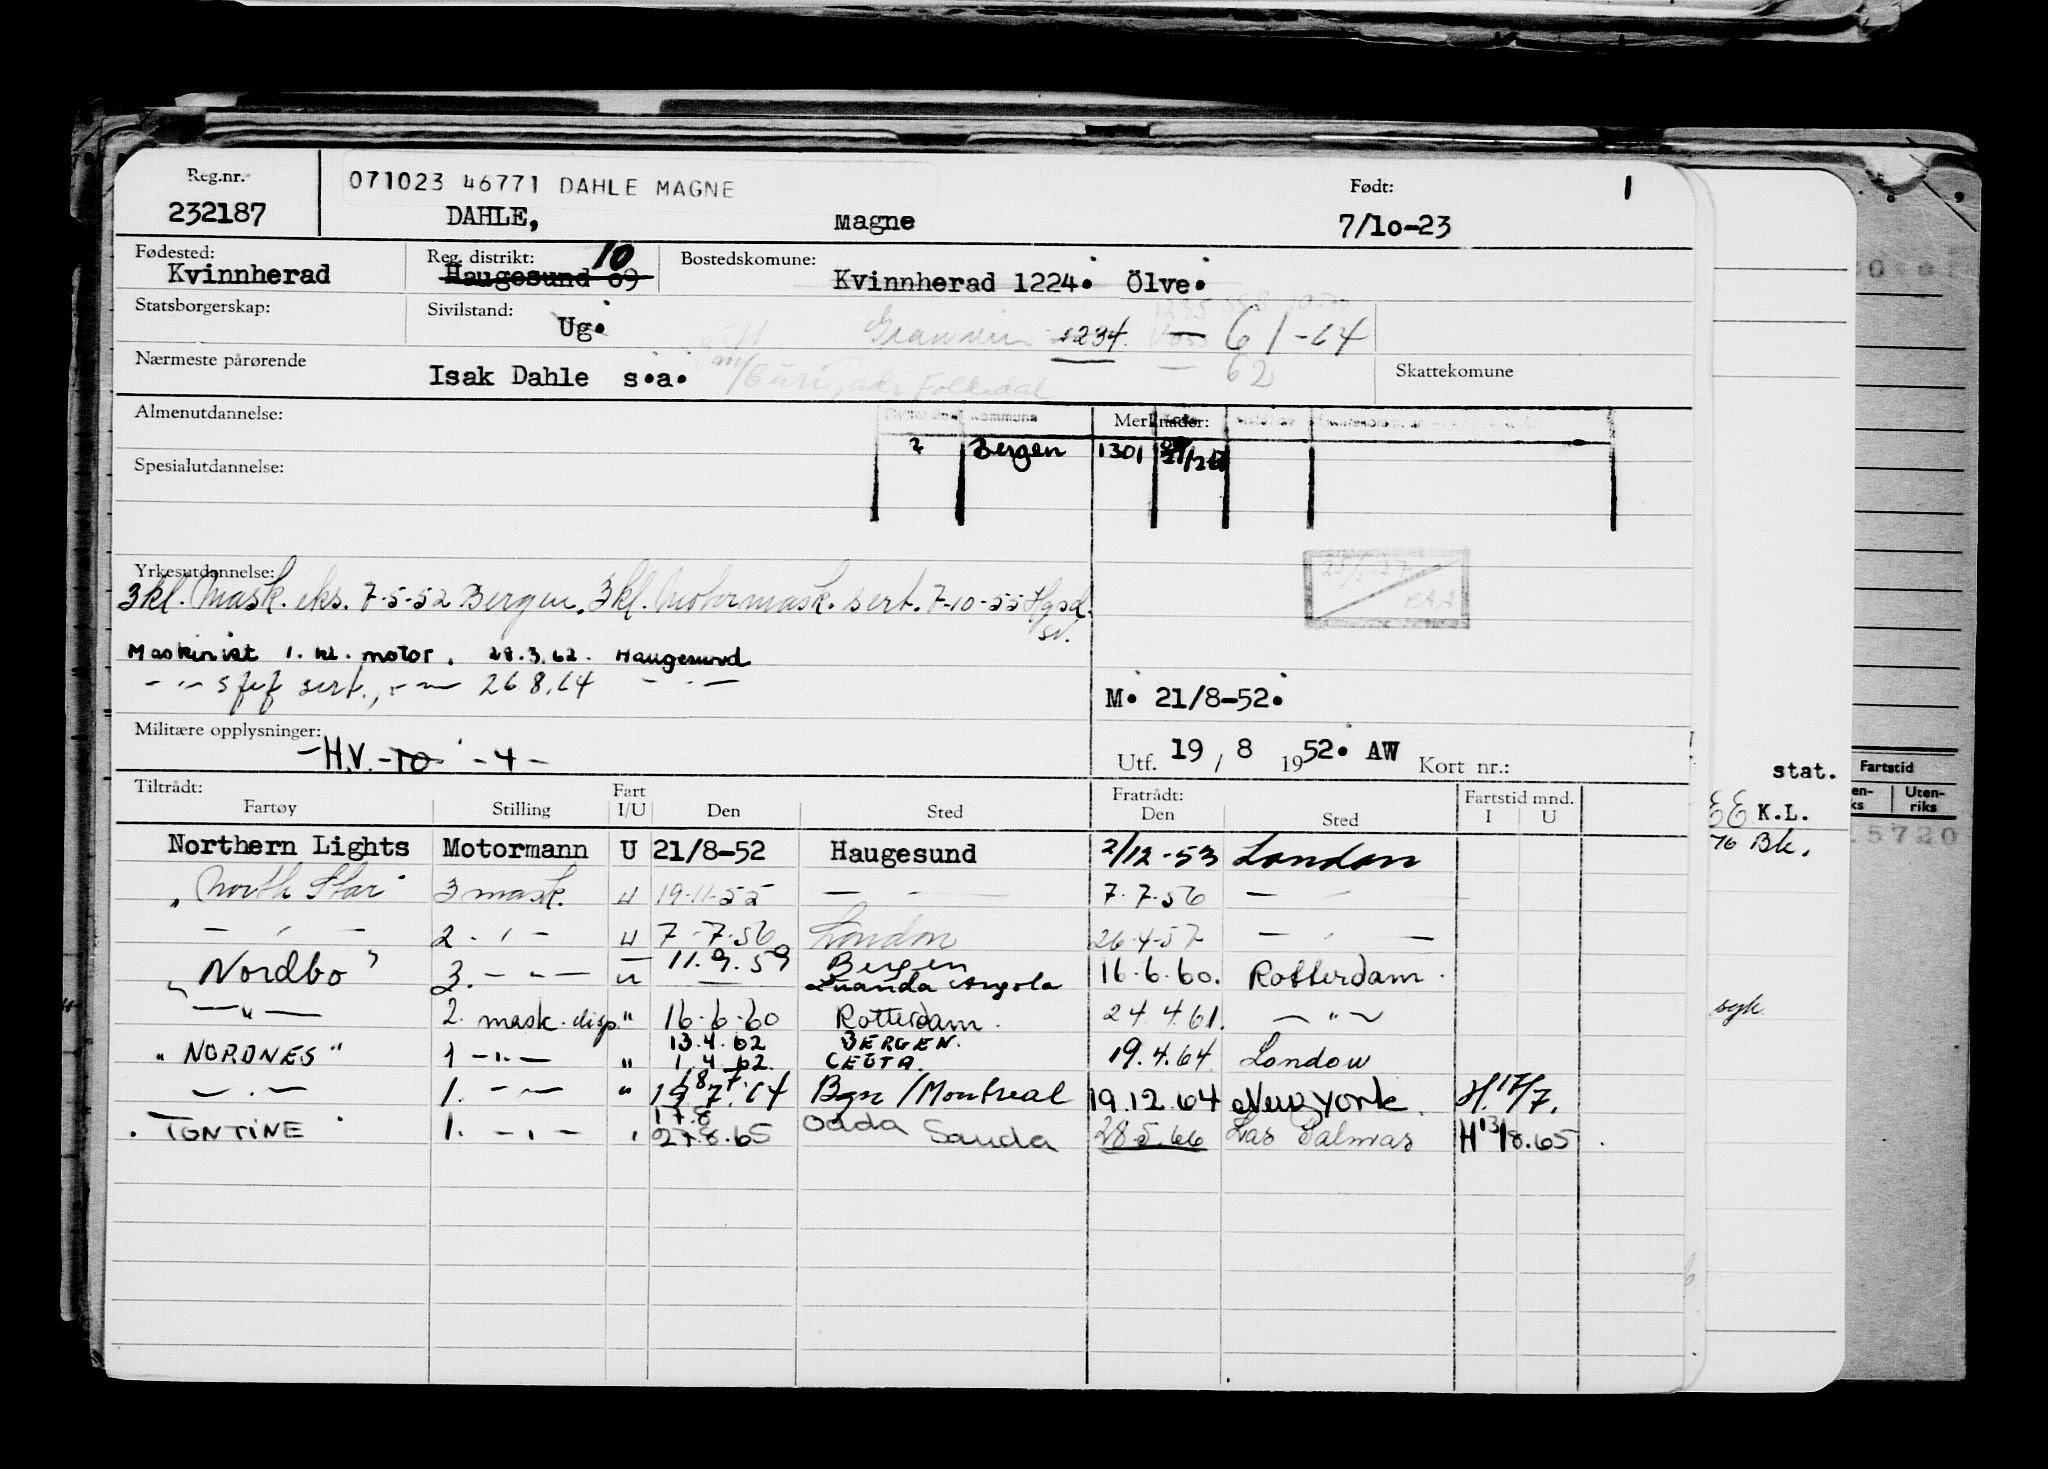 Reg.nr. 071023 46771 DAHLE MAGNE Født: 1
232187 DAHLE, Magne 7/10-23
Fødested: Reg. distrikt: 10 Bostedskomune:
Kvinnherad Haugesund 09 Kvinnherad 1224. Ölve.
Statsborgerskap: Sivilstand:
Ug. Granvin 1234. Voss — 61-64
Nærmeste pårørende Skattekomune
Isak Dahle s.a. m/Guri, adr Folkedal — 62
Almenutdannelse: kommune Merknader:
2 Bergen 1301
Spesialutdannelse:
Yrkesutdannelse:
3 kl. Mask. eks. 7-5-52 Bergen. 3 kl. Motormask. sert. 7-10-55 Hgsd.
sv.
Maskinist 1. kl. motor. 28.3.62. Haugesund
— " — sert., — " — 26.8.64 — " —
M. 21/8-52.
Militære opplysninger:
- H.V. - 10 - 4 -
Utf. 19 / 8 1952. AW Kort nr.:
Tiltrådt: Fratrådt: Fartstid mnd.
Fartøy Stilling Fart I/U Den Sted Den Sted I U
Northern Lights Motormann U 21/8-52 Haugesund 2/12-53 London
"North Star" 3 mask. U 19-11-55 — " — 7.7.56 — " —
— " — 2. — " — U 7-7-56 London 26-4-57 — " —
"Nordbo" 3. — " — U 11.9.59 Bergen Luanda Angola 16.6.60. Rotterdam.
— " — 2. mask. disp. " 16.6.60 Rotterdam. 24.4.61. — " —
"NORDNES" 1 — " — " 13.4.62 1.4.62. BERGEN. CEUTA. 19.4.64 London
— " — 1. — " — " Bgn / Montreal 19.12.64 New York. H.17/7.
"TONTINE" 1. — " — " 17.8 27.8.65 Odda Sauda 28.5.66 Las Palmas H13/8.65.
stat.
K.L.
76 Bk.
syk
Fartstid
Uten-
riks
5720